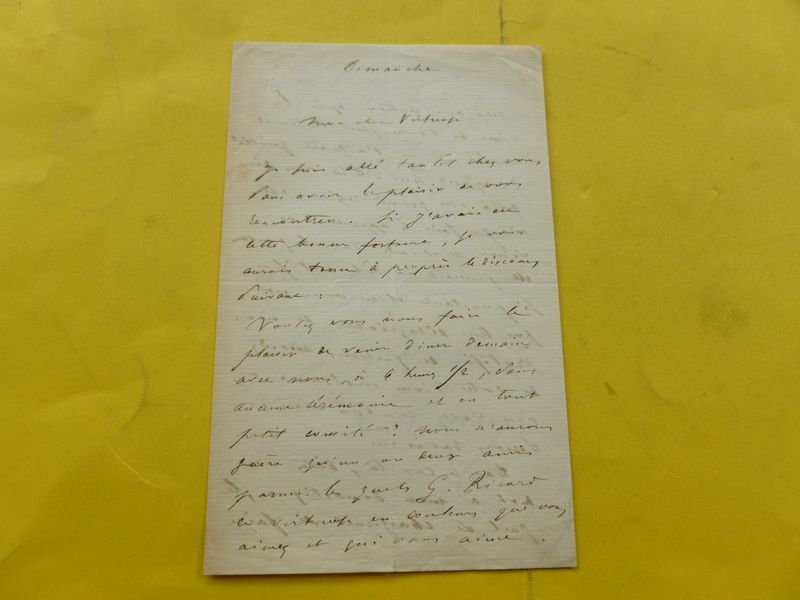 Dimanche
Mon cher Virtuose
Je suis allé tantôt chez vous
sans avoir le plaisir de vous
rencontrer. Si j'avais eu
cette bonne fortune, je vous
aurais tenu à peu près le discours
suivant :
Voulez vous nous faire le
plaisir de venir diner demain
avec nous, à 6 heures 1/2, sans
aucune cérémonie et en tout
petit comité ? Nous n'aurons
guère qu'un ou deux amis
parmi lesquels G. Ricard
ce virtuose en couleurs que vous
aimez et qui vous aime.